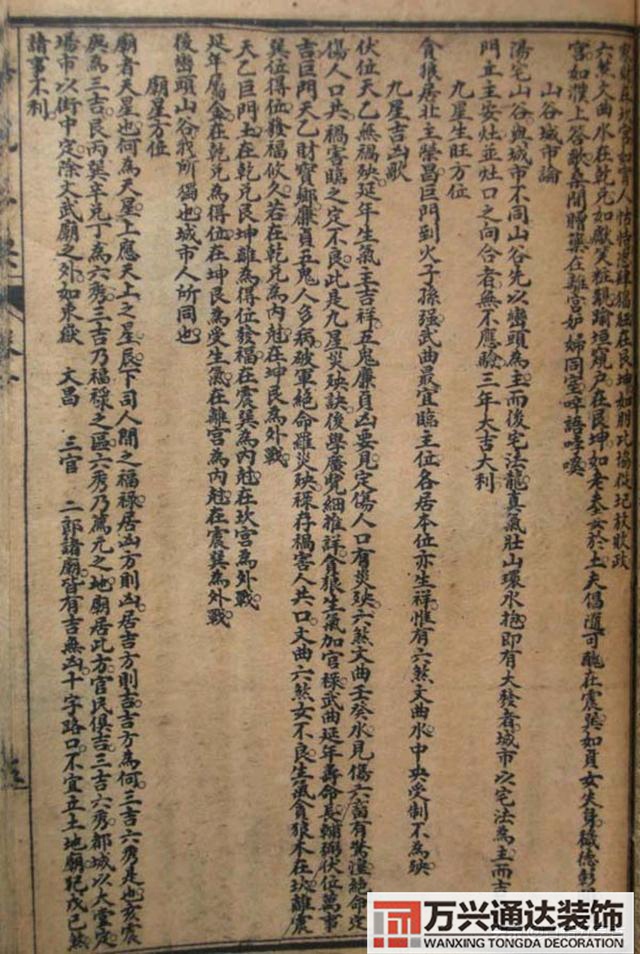 六煞文曲水在乾兌如獻笑粧親踰垣窺戶在艮坤如老
宮如濮上
山谷城市論
陽宅山谷與城市不同山谷先以巒頭為主而後宅法龍真氣壯山環水抱即有大發者城市以宅法為主而
門立主安灶並灶口之向合者無不應驗三年大吉大利
九星生旺方位
貪狼居北主榮昌巨門到火子孫强武曲最宜臨主位各居本位亦生祥惟有六煞文曲水中央受制不為殃
九星吉凶歌
伏位天乙無禍殃延年生氣主吉祥五鬼廉貞凶要見定傷人口有災殃六煞文曲壬癸水見傷六畜有
絕命定
傷人口共禍害臨之定不良此是九星災殃訣後學廣覽細推詳貪狼生氣加官祿武曲延年壽命長輔弼伏位萬事
吉巨門天乙財寶鄉廉貞五鬼人多病破軍絕命罹災殃祿存禍害人共口文曲六煞女不良生氣貪狼木在坎離震
巽位得位發福悠久若在乾兌為內尅在坤艮為外戰
天乙巨門土在乾兌艮坤離為得位發福在震巽為內尅在坎宮為外戰
延年屬金在乾兌為得位在坤艮為受生氣在離宮為內尅在震巽為外戰
後巒頭山谷我所獨也城市人所同也
廟星方位
廟者天星也何為天星上應天上之星辰下司人間之福祿居凶方則凶居吉方則吉吉方為何三吉六秀是也亥震
庚為三吉艮丙巽辛兌丁為六秀三吉乃福祿之區六秀乃薦元之地廟居此方官民俱吉三吉六秀都城以大堂定
場市以街中定除文武廟之外如東嶽 大昌 三官 二郎諸廟皆有吉無凶十字路口不宜立土地廟犯戊己煞
諸事不利
万兴通达装饰
WANXING TONGDA DECORATION